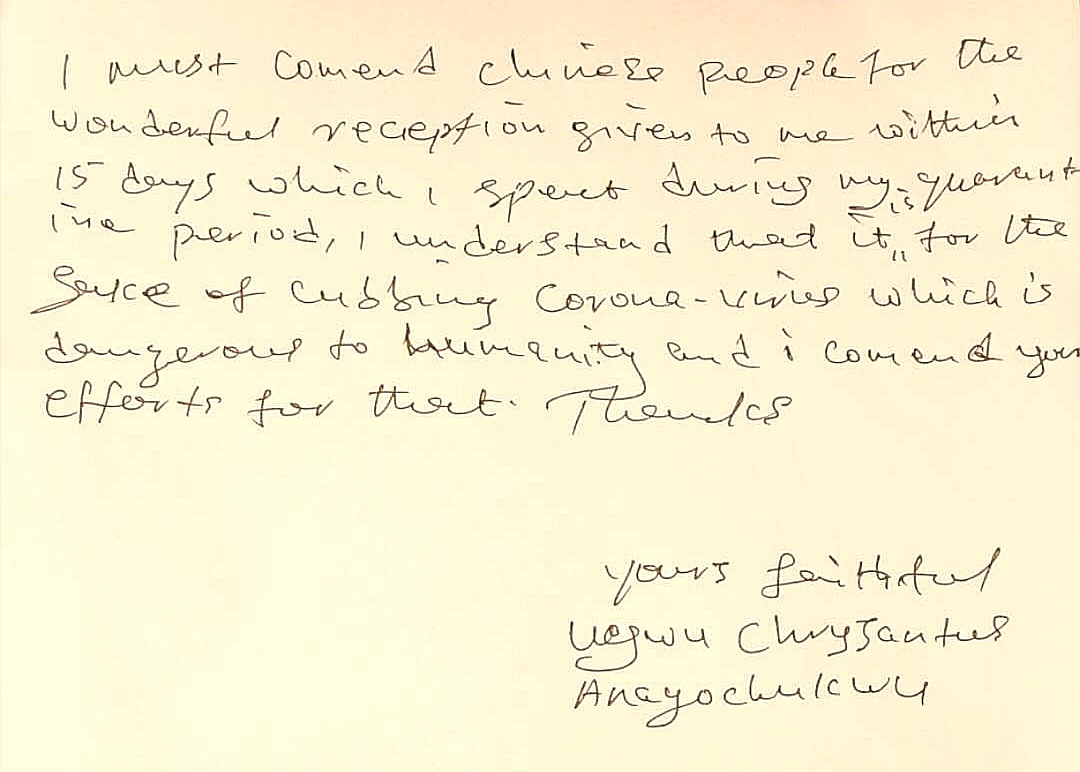 I must comend chinese people for the
wonderful reception given to me within
15 days which I spent during my quarant
ine period, I understand that it is for the
sake of cubbing corona-virus which is
dangerous to humanity and i comend your
efforts for that. Thanks
yours faithful
Ugwu Chrysantus
Anayochukwu